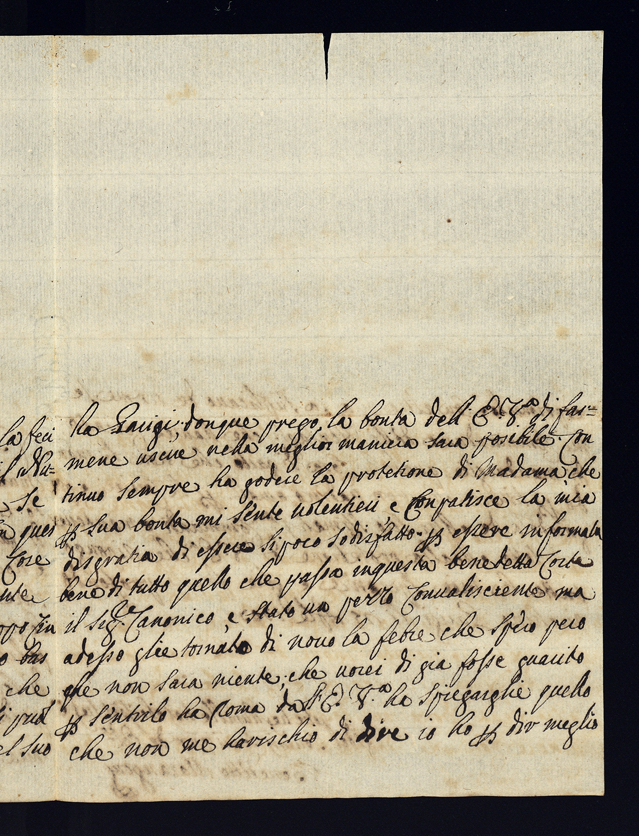 la feci
il Nu-
e se
in ques
Core
nte
ppo in
o bas
che
i qual
el suo
ha Parigi: donque prego, la bonta dell E. V.a di far=
mene uscire nella meglior maniera sara possibile. Con
tinuo sempre ha godere la protetione di Madama, che
p sua bonta mi sente volentieri e Conpatisce la mia
disgratia di essere si poco sodisfatto. p essere informata
bene di tutto quello che passa in questa benedetta Corte
il sig.r Canonico, e stato un pezzo Convalisciente ma
adesso glie tornata di novo la febre che spero pero
che non sara niente, che vorei di gia fosse guarito
p sentirlo ha Roma da V. E. V.a ha spiegarglie quello
che non me harischio di dire io ho p dir meglio